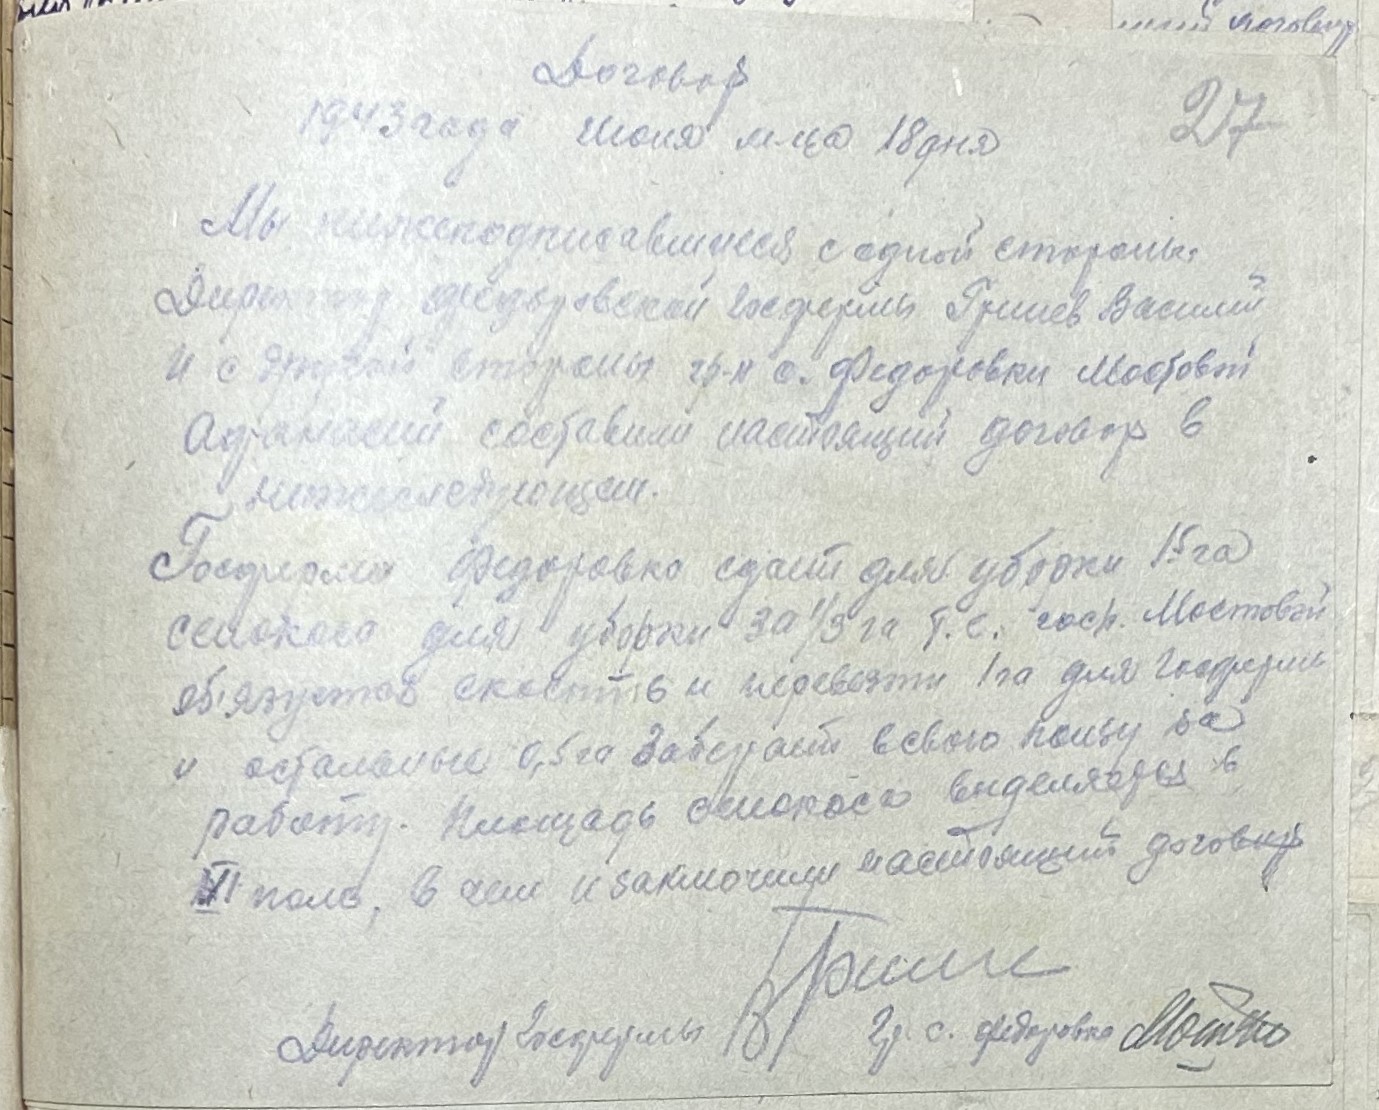 Договор
27
1943 года июня м-ца 18 дня
Мы нижеподписавшиеся с одной стороны.
Директор Федоровской Госфермы Гришев Василий
и с другой стороны гр-н с. Федоровки Мостовой
Афанасий составили настоящий договор в
нижеследующем.
Госферма Федоровка сдает для уборки 15 га
сенокоса для уборки за 1/3 га т.е. Мостовой
обязуется скосить и перевезти 1 га для Госфермы
и остальные 0,5 га забирает в свою пользу за
работу. Площадь сенокоса выделяется в
VI поле, в чем и заключили настоящий договор
Директор Госфермы
Гр. с. Федоровка